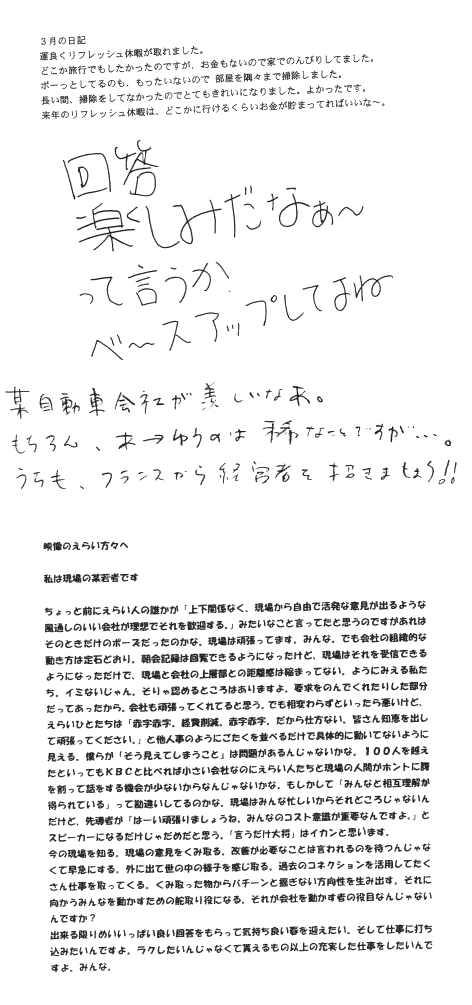 ３月の日記
運良くリフレッシュ休暇が取れました。
どこか旅行でもしたかったのですが、お金もないので家でのんびりしてました。
ボーっとしてるのも、もったいないので 部屋を隅々まで掃除しました。
長い間、掃除をしてなかったのでとてもきれいになりました。よかったです。
来年のリフレッシュ休暇は、どこかに行けるくらいお金が貯まってればいいな～。
回答
楽しみだなぁ～
って言うか
ベースアップしてよね
某自動車会社が羨しいなあ。
もちろん、あーゆうのは稀なことですが…。
うちも、フランスから経営者を招きましょう!!
映像のえらい方々へ
私は現場の某若者です
ちょっと前にえらい人の誰かが「上下関係なく、現場から自由で活発な意見が出るような
風通しのいい会社が理想でそれを歓迎する。」みたいなこと言ってたと思うのですがあれは
そのときだけのポーズだったのかな。現場は頑張ってます。みんな。でも会社の組織的な
動き方は定石どおり。朝会記録は回覧できるようになったけど、現場はそれを受信できる
ようになっただけで、現場と会社の上層部との距離感は縮まってない。ようにみえる私た
ち。イミないじゃん。そりゃ認めるところはありますよ。要求をのんでくれたりした部分
だってあったから。会社も頑張ってくれてると思う。でも相変わらずといったら悪いけど、
えらいひとたちは「赤字赤字。経費削減。赤字赤字。だから仕方ない。皆さん知恵を出し
て頑張ってください。」と他人事のようにごたくを並べるだけで具体的に動いてないように
見える。僕らが「そう見えてしまうこと」は問題があるんじゃないかな。１００人を越え
たといってもＫＢＣと比べれば小さい会社なのにえらい人たちと現場の人間がホントに腹
を割って話をする機会が少ないからなんじゃないかな。もしかして「みんなと相互理解が
得られている」って勘違いしてるのかな。現場はみんな忙しいからそれどころじゃないん
だけど、先導者が「はーい頑張りましょうね。みんなのコスト意識が重要なんですよ。」と
スピーカーになるだけじゃだめだと思う。「言うだけ大将」はイカンと思います。
今の現場を知る。現場の意見をくみ取る。改善が必要なことは言われるのを待つんじゃな
くて早急にする。外に出て世の中の様子を感じ取る。過去のコネクションを活用してたく
さん仕事を取ってくる。くみ取った物からバチーンと揺ぎない方向性を生み出す。それに
向かうみんなを動かすための舵取り役になる。それが会社を動かす者の役目なんじゃない
んですか？
出来る限りめいいっぱい良い回答をもらって気持ち良い春を迎えたい。そして仕事に打ち
込みたいんですよ。ラクしたいんじゃなくて貰えるもの以上の充実した仕事をしたいんで
すよ。みんな。